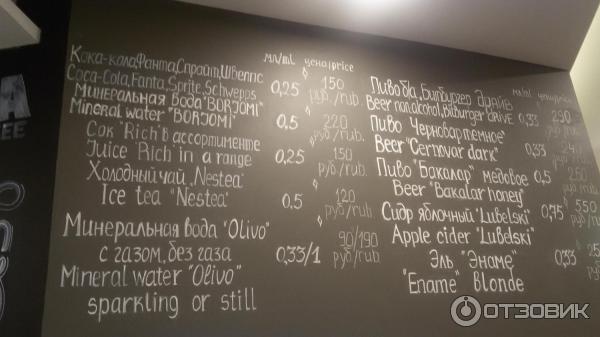 мл/ml цена/price
Кока-кола,Фанта,Спрайт,Швеппс
Coca-Cola,Fanta,Sprite,Schwepps 0,25 150 руб/rub.
Минеральная вода "BORJOMI"
Mineral water "BORJOMI" 0,5 220 руб/rub.
Сок "Rich" в ассортименте
Juice "Rich" in a range 0,25 150 руб/rub.
Холодный чай "Nestea"
Ice tea "Nestea" 0,5 120 руб/rub.
Минеральная вода "Olivo"
с газом, без газа 0,33/1 90/190 руб/rub.
Mineral water "Olivo"
sparkling or still
мл/ml цена/price
Пиво б/а, Битбургер Драйв
Beer non alcohol, Bitburger drive 0,33 руб/rub.
Пиво Черновар темное"
Beer "Cernovar dark" 0,33 руб/rub.
Пиво "Бакалор" медовое 0,5 250
Beer "Bakalar honey" руб/rub.
Сидр яблочный "Lubelski" 0,75 550
Apple cider "Lubelski" руб/rub.
Эль "Энаме" 0,33
"Ename" Blonde
ОТЗОВИК